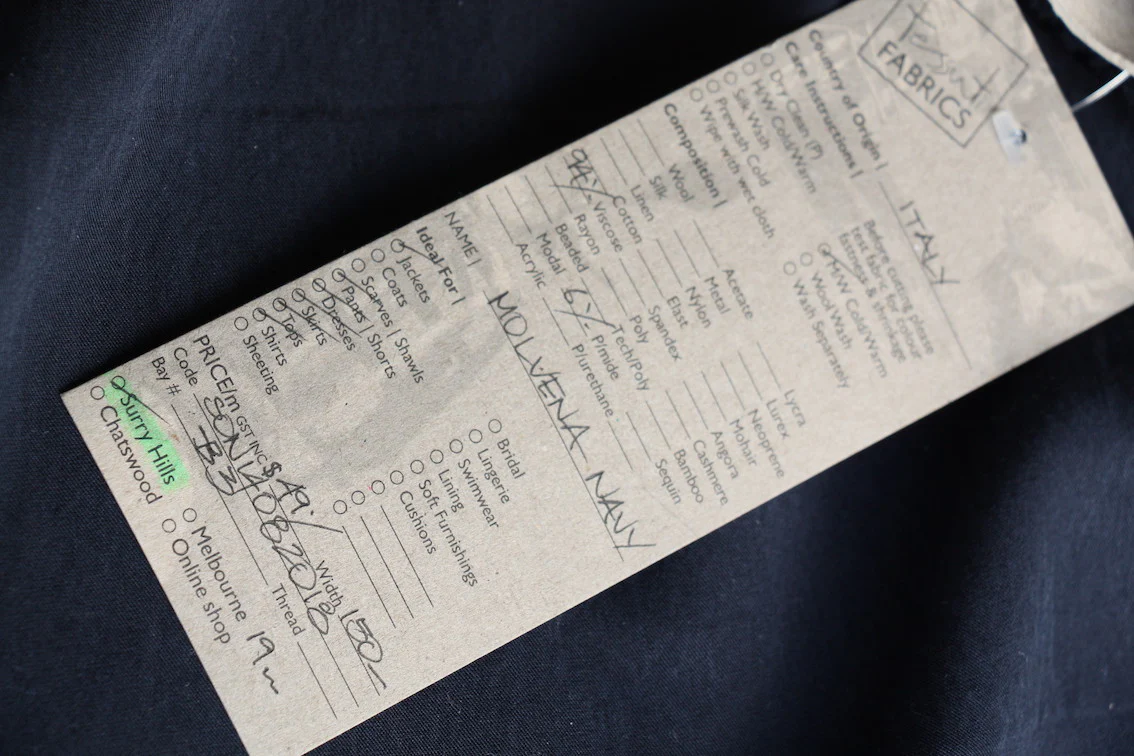 Tessuti
FABRICS
Country of Origin | ITALY
Care Instructions |
Before cutting please
test fabric for colour
fastness & shrinkage
Dry Clean (P)
H/W Cold/Warm
Silk Wash
Prewash Cold
Wipe with wet cloth
H/W Cold/Warm
Wool Wash
Wash Separately
Composition |
Wool
Silk
Linen
94% Cotton
Viscose
Rayon
Beaded
Modal
Acrylic
Acetate
Metal
Nylon
Elast
Spandex
Poly
Tech/Poly
6% P/mide
P/urethane
Lycra
Lurex
Neoprene
Mohair
Angora
Cashmere
Bamboo
Sequin
NAME | MOLVENA NAVY
Ideal For |
Jackets
Coats
Scarves | Shawls
Pants | Shorts
Dresses
Skirts
Tops
Shirts
Sheeting
Bridal
Lingerie
Swimwear
Lining
Soft Furnishings
Cushions
PRICE/m GST INC $49.- Width 150-
Code SON14082018
Bay # B3 Thread
Surry Hills
Chatswood
Melbourne
Online shop
19m